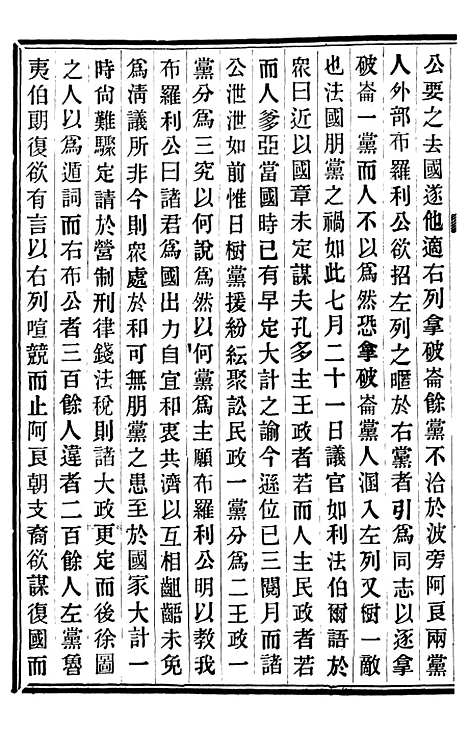 公要之去國遂他適右列拿破崙餘黨不洽於波旁阿良兩黨
人外部布羅利公欲招左列之暱於右黨者引爲同志以逐拿
破崙一黨而人不以爲然恐拿破崙黨人溷入左列又樹一敵
也法國朋黨之禍如此七月二十一日議官如利法伯爾語於
衆曰近以國章未定謀夫孔多主王政者若而人主民政者若
而人爹亞當國時已有早定大計之諭今遜位已三閱月而諸
公泄泄如前惟日樹黨援紛紜聚訟民政一黨分爲二王政一
黨分爲三究以何說爲然以何黨爲主願布羅利公明以教我
布羅利公曰諸君爲國出力自宜和衷共濟以互相齟齬未免
爲淸議所非今則衆處於和可無朋黨之患至於國家大計一
時尙難驟定請於營制刑律錢法稅則諸大政更定而後徐圖
之人以爲遁詞而右布公者三百餘人違者二百餘人左黨魯
夷伯朗復欲有言以右列喧競而止阿良朝支裔欲謀復國而